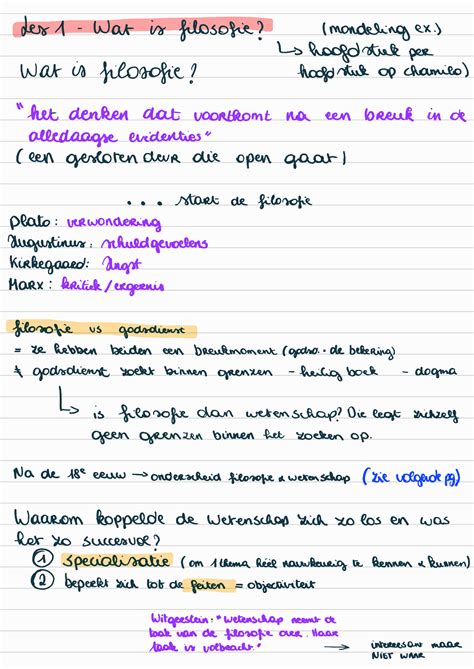 Les 1 - Wat is filosofie?
(mondeling ex.)
↳ hoofdstuk per
hoofdstuk op chamilo)
Wat is filosofie?
"het denken dat voortkomt na een breuk in de
alledaagse evidenties"
(een gesloten deur die open gaat)
... start de filosofie
Plato: verwondering
Augustinus: schuldgevoelens
Kirkegaard: Angst
Marx: kritiek/ergernis
filosofie vs godsdienst
= ze hebben beiden een breukmoment (godsd. de bekering)
≠ godsdienst zoekt binnen grenzen - heilig boek - dogma
↳ is filosofie dan wetenschap? Die legt zichzelf
geen grenzen binnen het zoeken op.
Na de 18e eeuw → onderscheid filosofie & wetenschap (zie volgende pg)
Waarom koppelde de wetenschap zich zo los en was
het zo succesvol?
① specialisatie (om 1 thema héél nauwkeurig te kennen & kunnen)
② beperkt zich tot de feiten = objectiviteit
Witgeestein: "Wetenschap neemt de
taak van de filosofie over. Haar
taak is volbracht."
→ interessant maar
NIET WAAR